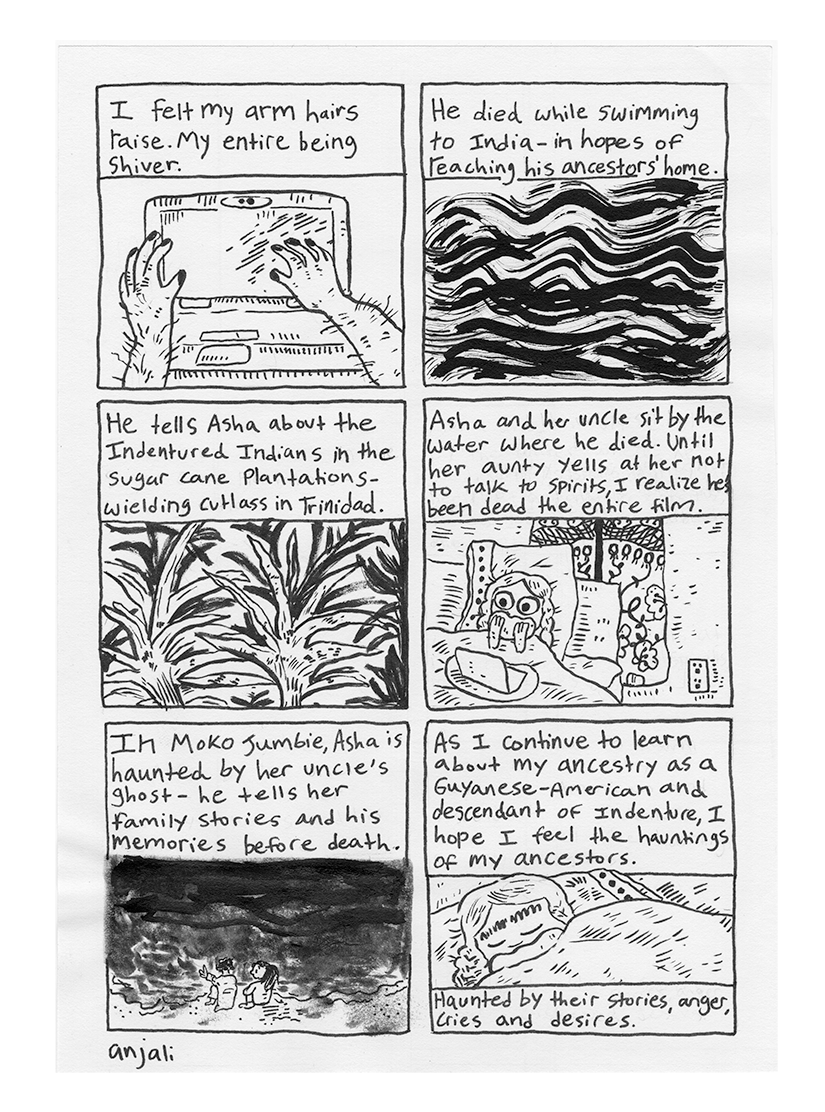 I felt my arm hairs
raise. My entire being
Shiver.
He died while swimming
to India - in hopes of
reaching his ancestors' home.
He tells Asha about the
Indentured Indians in the
sugar cane Plantations -
wielding cutlass in Trinidad.
Asha and her uncle sit by the
water where he died. Until
her aunty yells at her not
to talk to spirits, I realize he's
been dead the entire film.
In Moko Jumbie, Asha is
haunted by her uncle's
ghost - he tells her
family stories and his
memories before death.
As I continue to learn
about my ancestry as a
Guyanese-American and
descendant of Indenture, I
hope I feel the hauntings
of my ancestors.
Haunted by their stories, anger,
cries and desires.
anjali